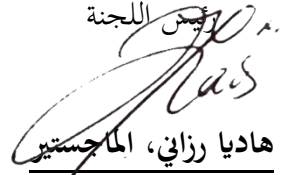 رئيس اللجنة
هاديا رزاني، الماجستير